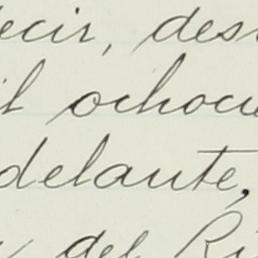 ecir, des
il ochoci
delante,
del Ri